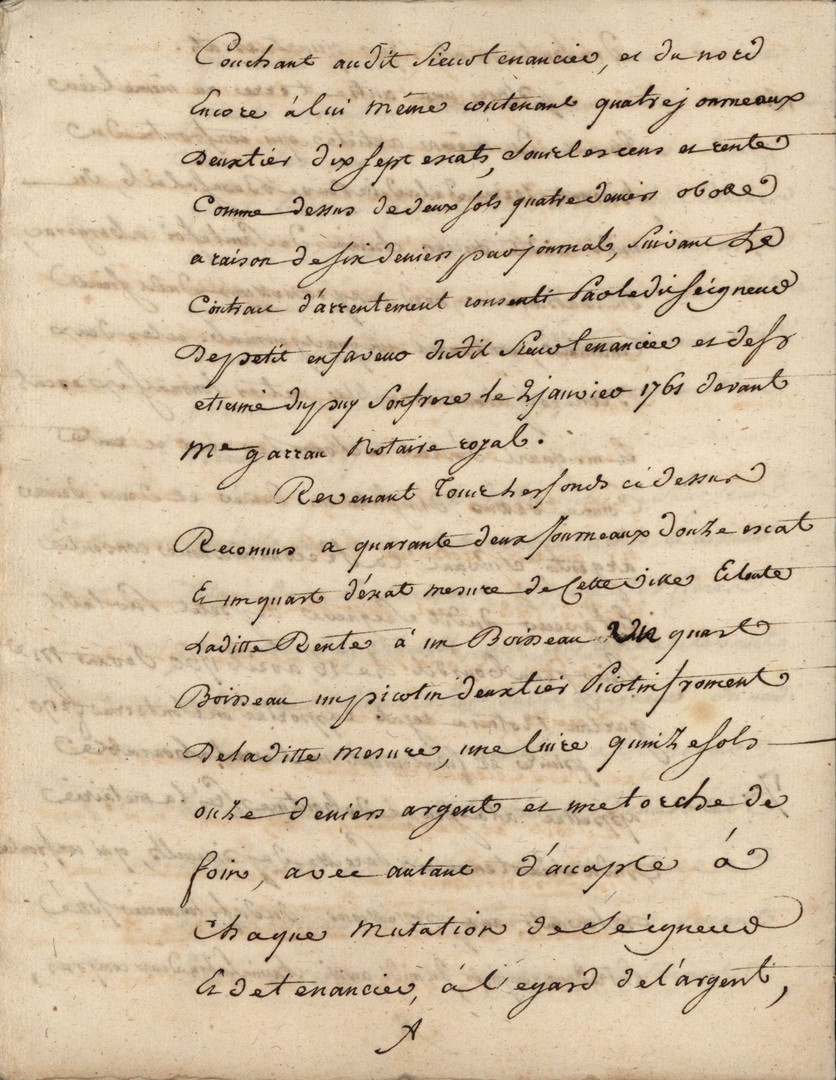 Couchant audit Sieur tenancier, et du nord
Encore à lui même contenant quatre journeaux
Deux tier dix sept escats, Sour les cens et rente
Comme dessus de deux sols quatre deniers obolle
a raison de six deniers par journal, Suivant le
Contrat d'arrentement consenti Par ledit seigneur
De petit en faveur dudit Sieur tenancier et de sr
etienne dupuy Son frere le 2 janvier 1761 devant
Me garrau Notaire royal.
Revenant Tour les fonds ci dessus
Reconnus a quarante deux Journeaux douze escat
Et un quart d'escat mesure de Cette ville Et toute
Laditte Rente à un Boisseau un quart
Boisseau un picotin deux tier Picotin froment
De laditte mesure, une livre quinze sols
onze deniers argent et une torche de
foin, avec autant d'accapte à
Chaque Mutation de Seigneur
Et de tenancier, à l'egard de l'argent,